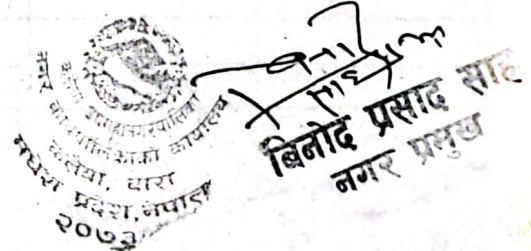 कलैया उपमहानगरपालिका
नगर कार्यपालिकाको कार्यालय
कलैया, बारा
मधेश प्रदेश, नेपाल
२०७३
बिनोद प्रसाद साह
नगर प्रमुख